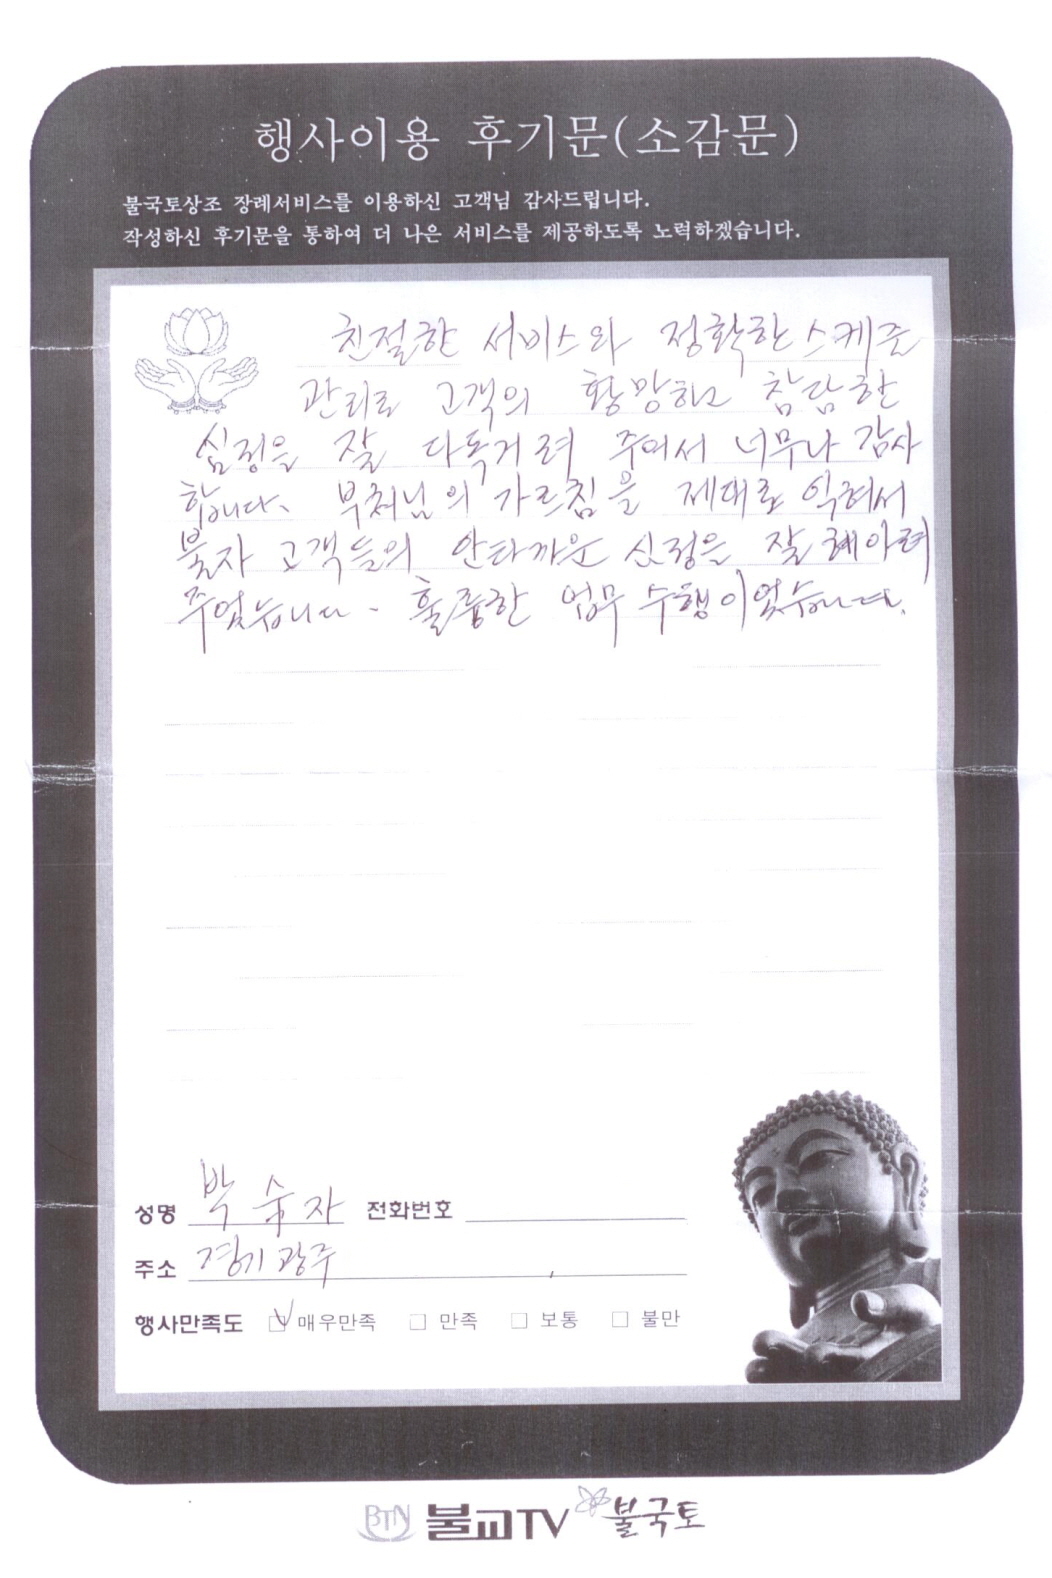 행사이용 후기문(소감문)
불국토상조 장례서비스를 이용하신 고객님 감사드립니다.
작성하신 후기문을 통하여 더 나은 서비스를 제공하도록 노력하겠습니다.
친절한 서비스와 정확한 스케쥴
관리로 고객의 황망하고 참담한
심정을 잘 다독거려 주어서 너무나 감사
합니다. 부처님의 가르침을 제대로 익혀서
불자 고객들의 안타까운 심정을 잘 헤아려
주었습니다. 훌륭한 업무 수행이었습니다.
성명 박숙자 전화번호
주소 경기 광주
행사만족도 매우만족 만족 보통 불만
BTN 불교TV 불국토